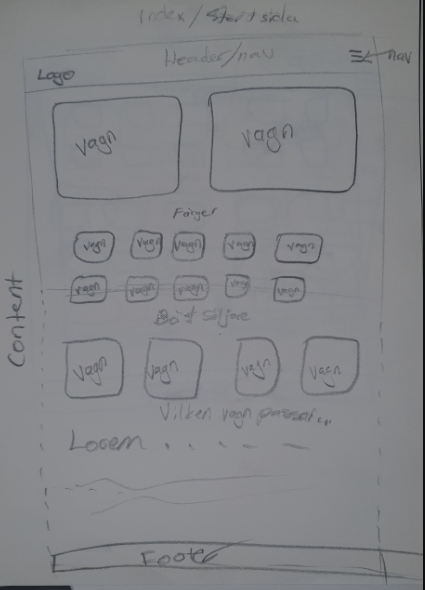 Index / Startsida
Header/nav
nav
Logo
vagn vagn
Färger
vagn vagn vagn vagn vagn
vagn vagn vagn vagn vagn
Content
Bäst Säljare
vagn vagn vagn vagn
Vilken vagn
Lorem
Footer